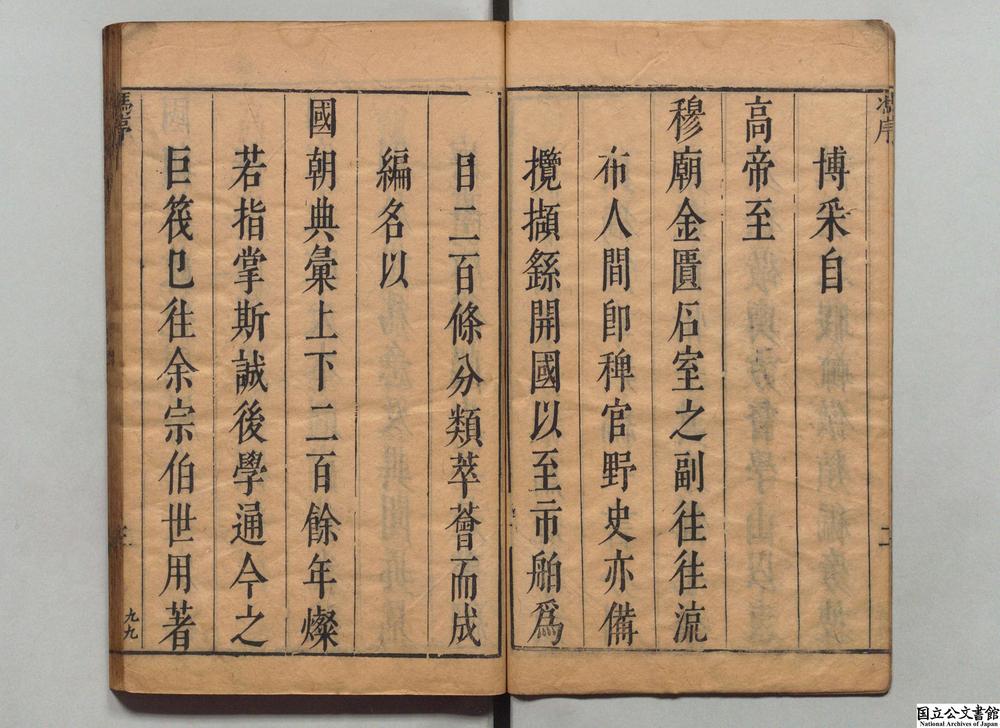 馮序
二
博采自
高帝至
穆廟金匱石室之副往往流
布人間即稗官野史亦備
攬擷繇開國以至市舶爲
目二百條分類萃薈而成
編名以
國朝典彙上下二百餘年燦
若指掌斯誠後學通今之
巨筏已往余宗伯世用著
馮序
三
九九
国立公文書館
National Archives of Japan